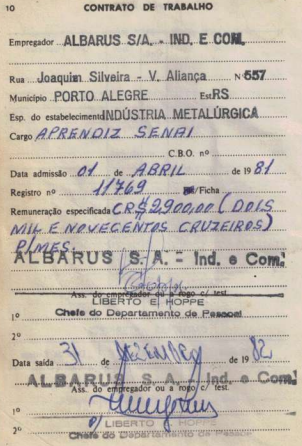 10 CONTRATO DE TRABALHO
Empregador ALBARUS S/A. - IND. E COM.
Rua Joaquim Silveira - V. Aliança Nº 557
Município PORTO ALEGRE Est RS
Esp. do estabelecimento INDÚSTRIA METALÚRGICA
Cargo APRENDIZ SENAI
C.B.O. nº
Data admissão 01 de ABRIL de 19 81
Registro nº 11769 /Ficha
Remuneração especificada CR$ 2.900,00 (DOIS
MIL E NOVECENTOS CRUZEIROS)
P/MES.
ALBARUS S. A. - Ind. e Com.
Ass. do empregador ou a rogo c/ test.
LIBERTO E. HOPPE
1º Chefe do Departamento de Pessoal
2º
Data saída 31 de DEZEMBRO de 19 82
ALBARUS S. A. - Ind. e Com.
Ass. do empregador ou a rogo c/ test.
1º
P/ LIBERTO E. HOPPE
2º Chefe do Departamento de Pessoal